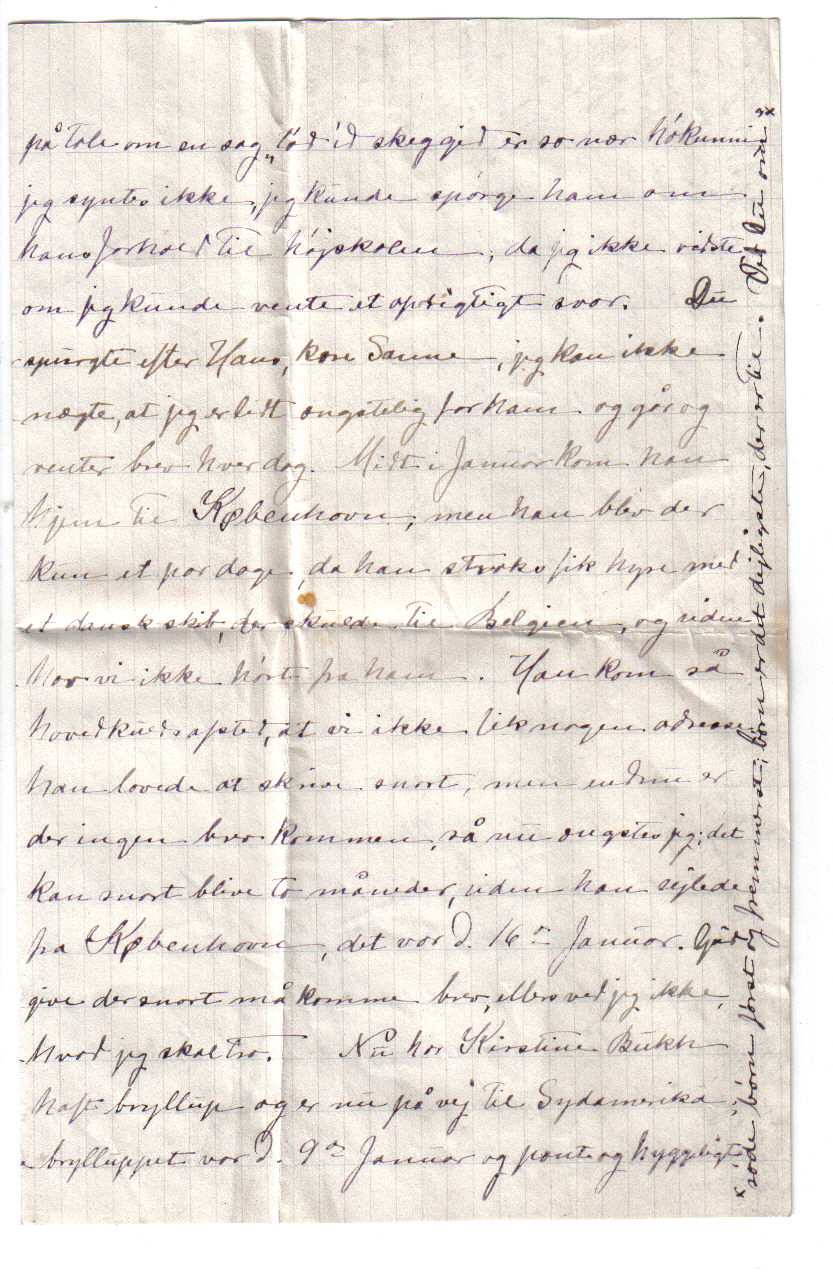 på tale om en sag, „tåd'id skegged er so nær hókunni"
jeg syntes ikke, jeg kunde spørge ham om
hans forhold til højskolen, da jeg ikke vidste
om jeg kunde vente et oprigtigt svar. Du
spurgte efter Hans, kære Sanne, jeg kan ikke
nægte, at jeg er lidt ængstelig for ham og går og
venter brev hver dag. Midt i Januar kom han
hjem til København, men han blev der
kun et par dage, da han straks fik hyre med
et dansk skib, der skulde til Belgien, og siden
har vi ikke hørt fra ham. Han kom så
hovedkulds afsted, at vi ikke fik nogen adresse
han lovede at skrive snart, men endnu er
der ingen brev kommen, så nu ængstes jeg; det
kan snart blive to måneder, siden han sejlede
fra København, det var d. 16de Januar. Gud
give der snart må komme brev, ellers ved jeg ikke,
hvad jeg skal tro. Nu har Kirstine Bukh
haft bryllup og er nu på vej til Sydamerika
brylluppet var d. 9de Januar og pænt og hyggeligt
x søde børn først og fremmerst; børn er det dejligste, der er til. Ved Du om x